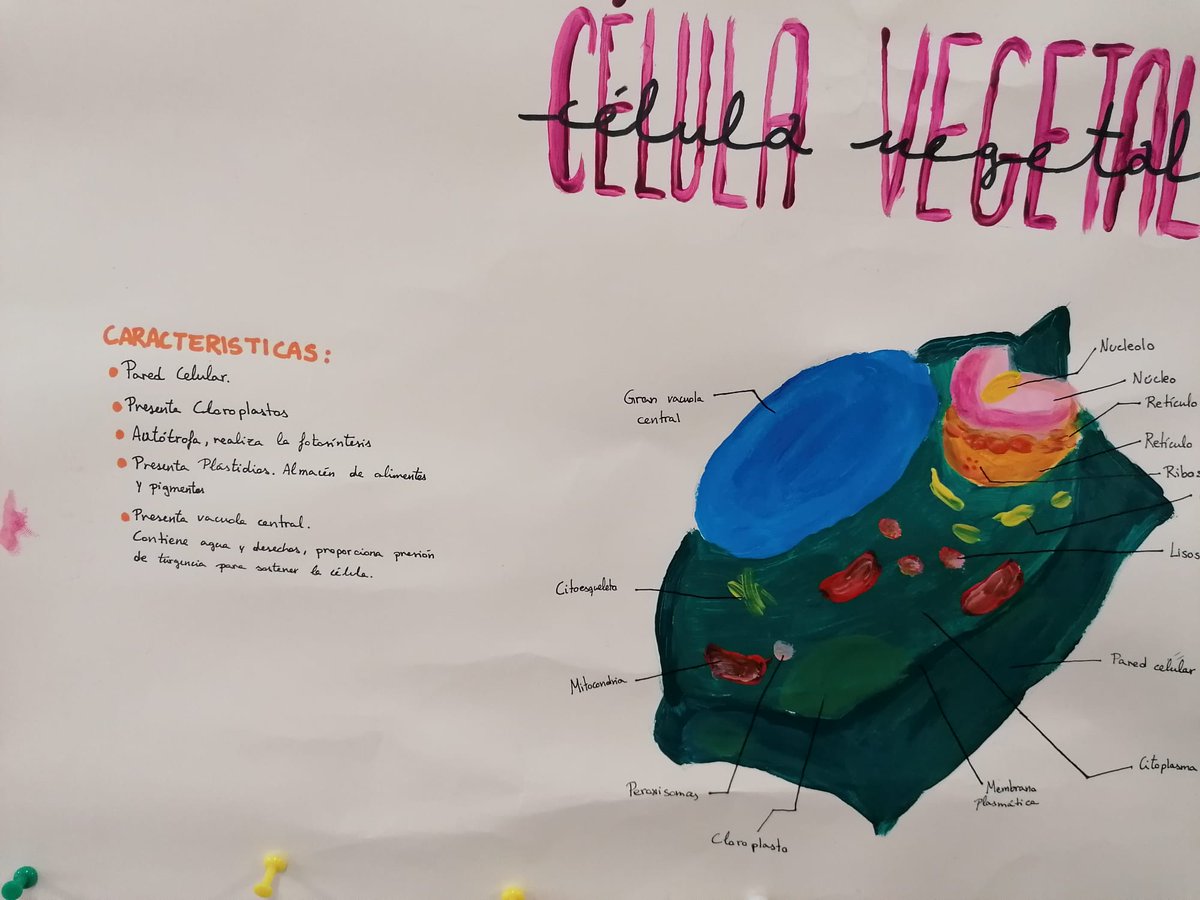 CÉLULA VEGETAL
célula vegetal
CARACTERISTICAS:
Pared Celular.
Presenta Cloroplastos
Autótrofa, realiza la fotosíntesis
Presenta Plástidios. Almacén de alimentos
y pigmentos
Presenta vacuola central.
Contiene agua y desechos, proporciona presión
de turgencia para sostener la célula.
Gran vacuola
central
Nucleolo
Núcleo
Retículo
Retículo
Ribos
Lisos
Citoesqueleto
Mitocondria
Pared celular
Citoplasma
Peroxisomas
Membrana
plasmática
Cloroplasto